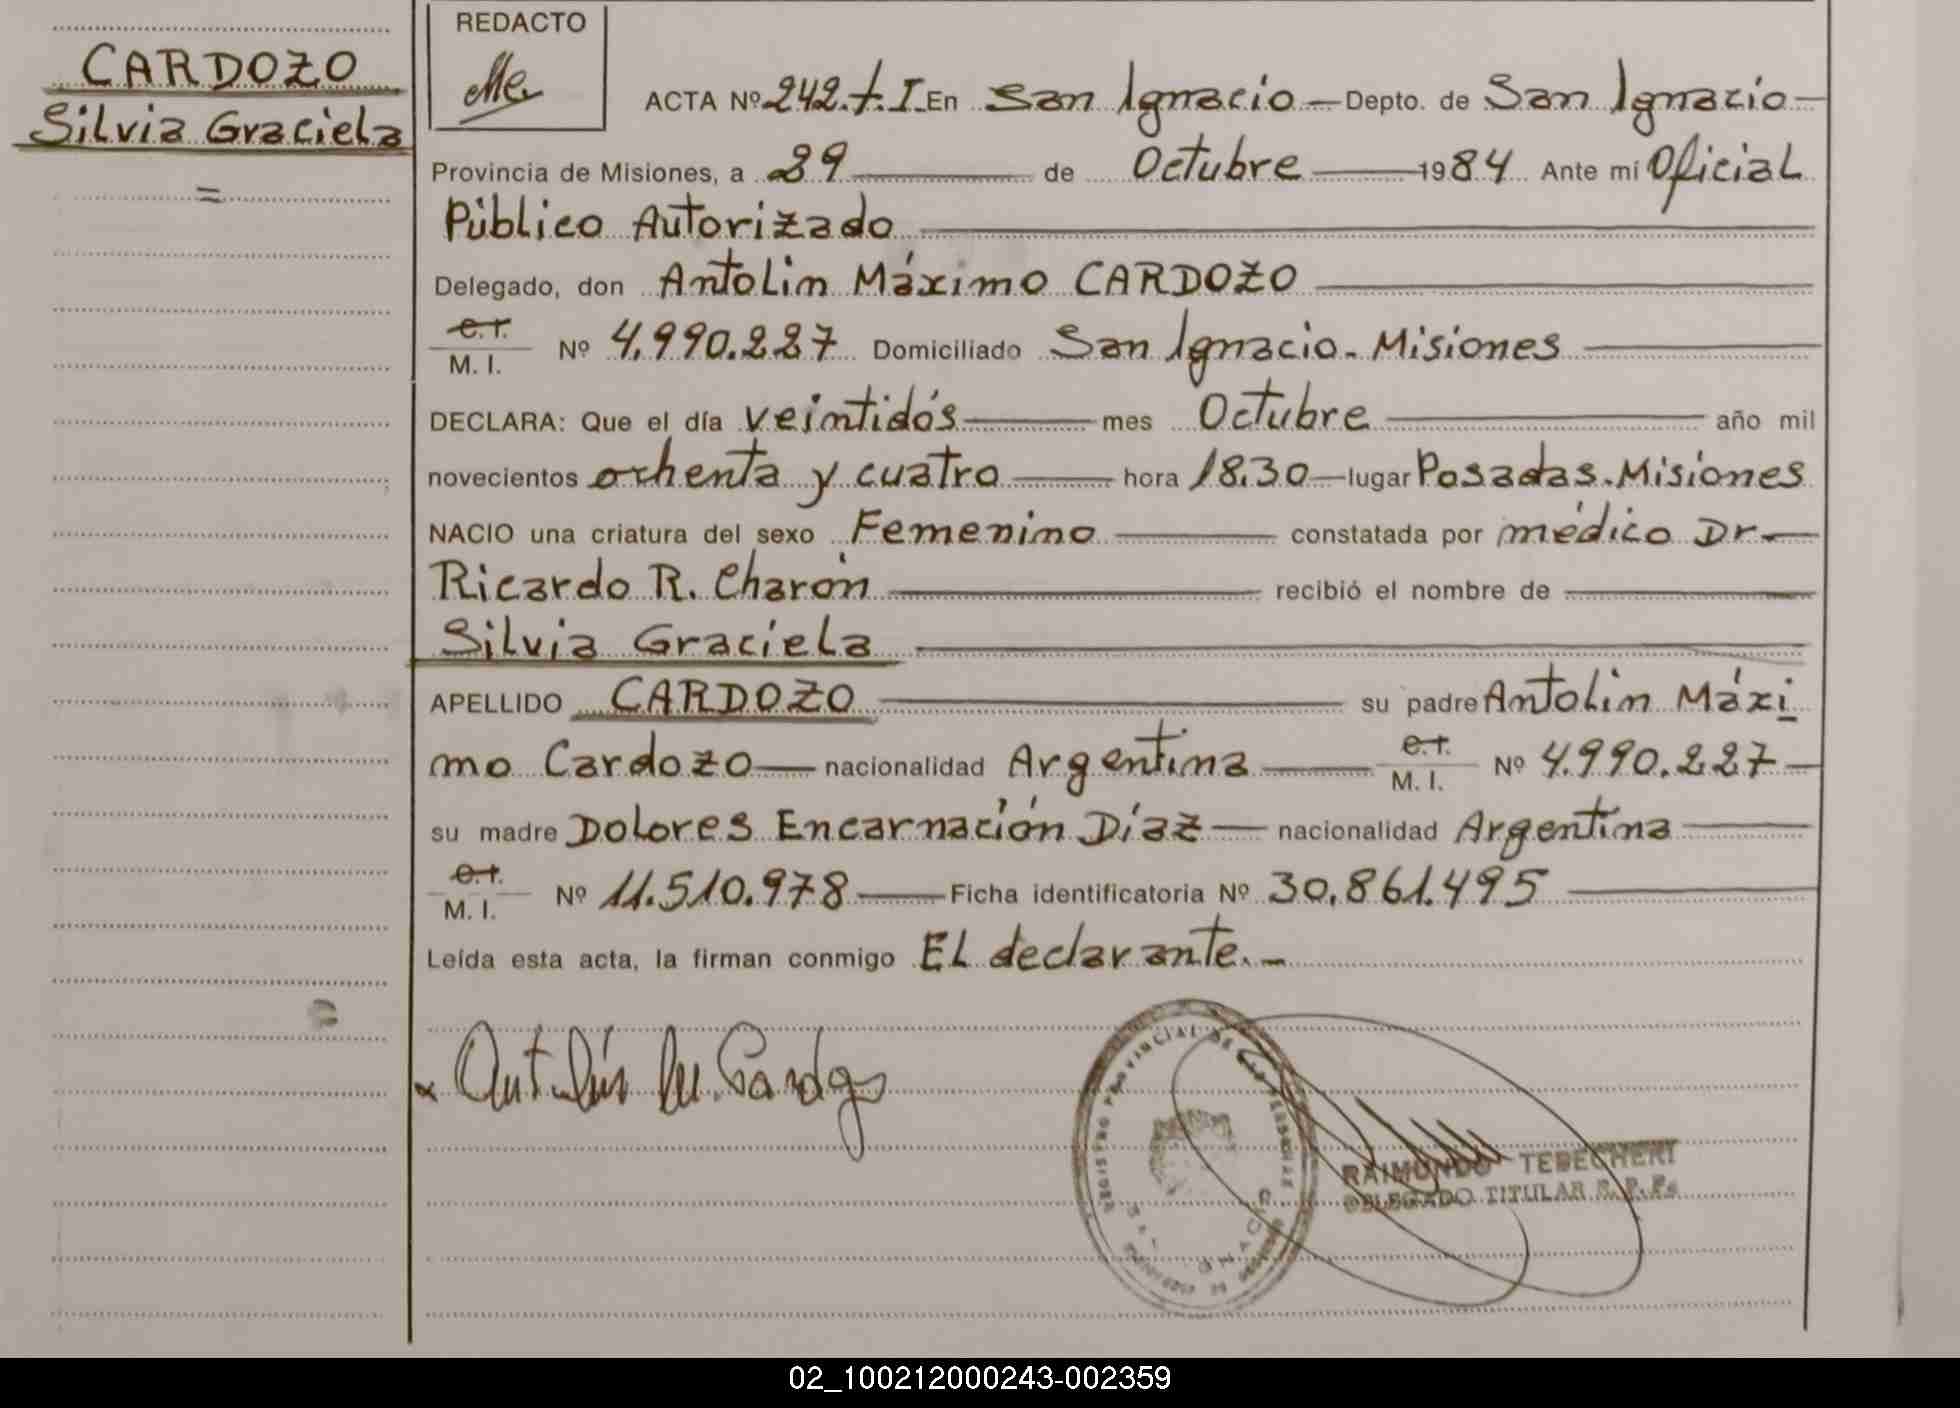 CARDOZO
Silvia Graciela
=
REDACTO
ACTA Nº 242.t.I. En San Ignacio — Depto. de San Ignacio —
Provincia de Misiones, a 29 de Octubre 1984 Ante mí Oficial
Público Autorizado
Delegado, don Antolin Máximo CARDOZO
C. I.
M. I. Nº 4.990.227 Domiciliado San Ignacio. Misiones
DECLARA: Que el día veintidós mes Octubre año mil
novecientos ochenta y cuatro hora 18.30 — lugar Posadas. Misiones
NACIO una criatura del sexo Femenino constatada por médico Dr.
Ricardo R. Charón recibió el nombre de
Silvia Graciela
APELLIDO CARDOZO su padre Antolin Máxi
mo Cardozo — nacionalidad Argentina C. I.
M. I. Nº 4.990.227 —
su madre Dolores Encarnación Díaz — nacionalidad Argentina
C. I.
M. I. Nº 11.510.978 — Ficha identificatoria Nº 30.861.495
Leída esta acta, la firman conmigo El declarante. -
x Antolín M. Cardozo
REGISTRO PROVINCIAL DE LAS PERSONAS
RAIMUNDO TEBECHERI
DELEGADO TITULAR R. P. Ps
02_100212000243-002359